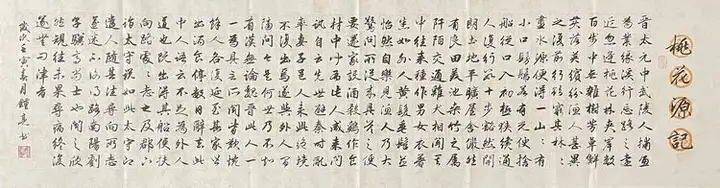 桃花源記
晉太元中武陵人捕魚
為業緣溪行忘路之遠
近忽逢桃花林夾岸數
百步中無雜樹芳草鮮
美落英繽紛漁人甚異
之復前行欲窮其林林
盡水源便得一山山有
小口髣髴若有光便捨
船從口入初極狹纔通
人復行數十步豁然開
朗土地平曠屋舍儼然
有良田美池桑竹之屬
阡陌交通雞犬相聞其
中往來種作男女衣著
悉如外人黃髮垂髫並
怡然自樂見漁人乃大
驚問所從來具答之便
要還家設酒殺雞作食
村中聞有此人咸來問
訊自云先世避秦時亂
率妻子邑人來此絕境
不復出焉遂與外人間
隔問今是何世乃不知
有漢無論魏晉此人一
一為具言所聞皆歎惋
餘人各復延至其家皆
出酒食停數日辭去此
中人語云不足為外人
道也既出得其船便扶
向路處處志之及郡下
詣太守說如此太守即
遣人隨其往尋向所志
遂迷不復得路南陽劉
子驥高尚士也聞之欣
然規往未果尋病終後
遂無問津者
歲次壬寅春月鍾書